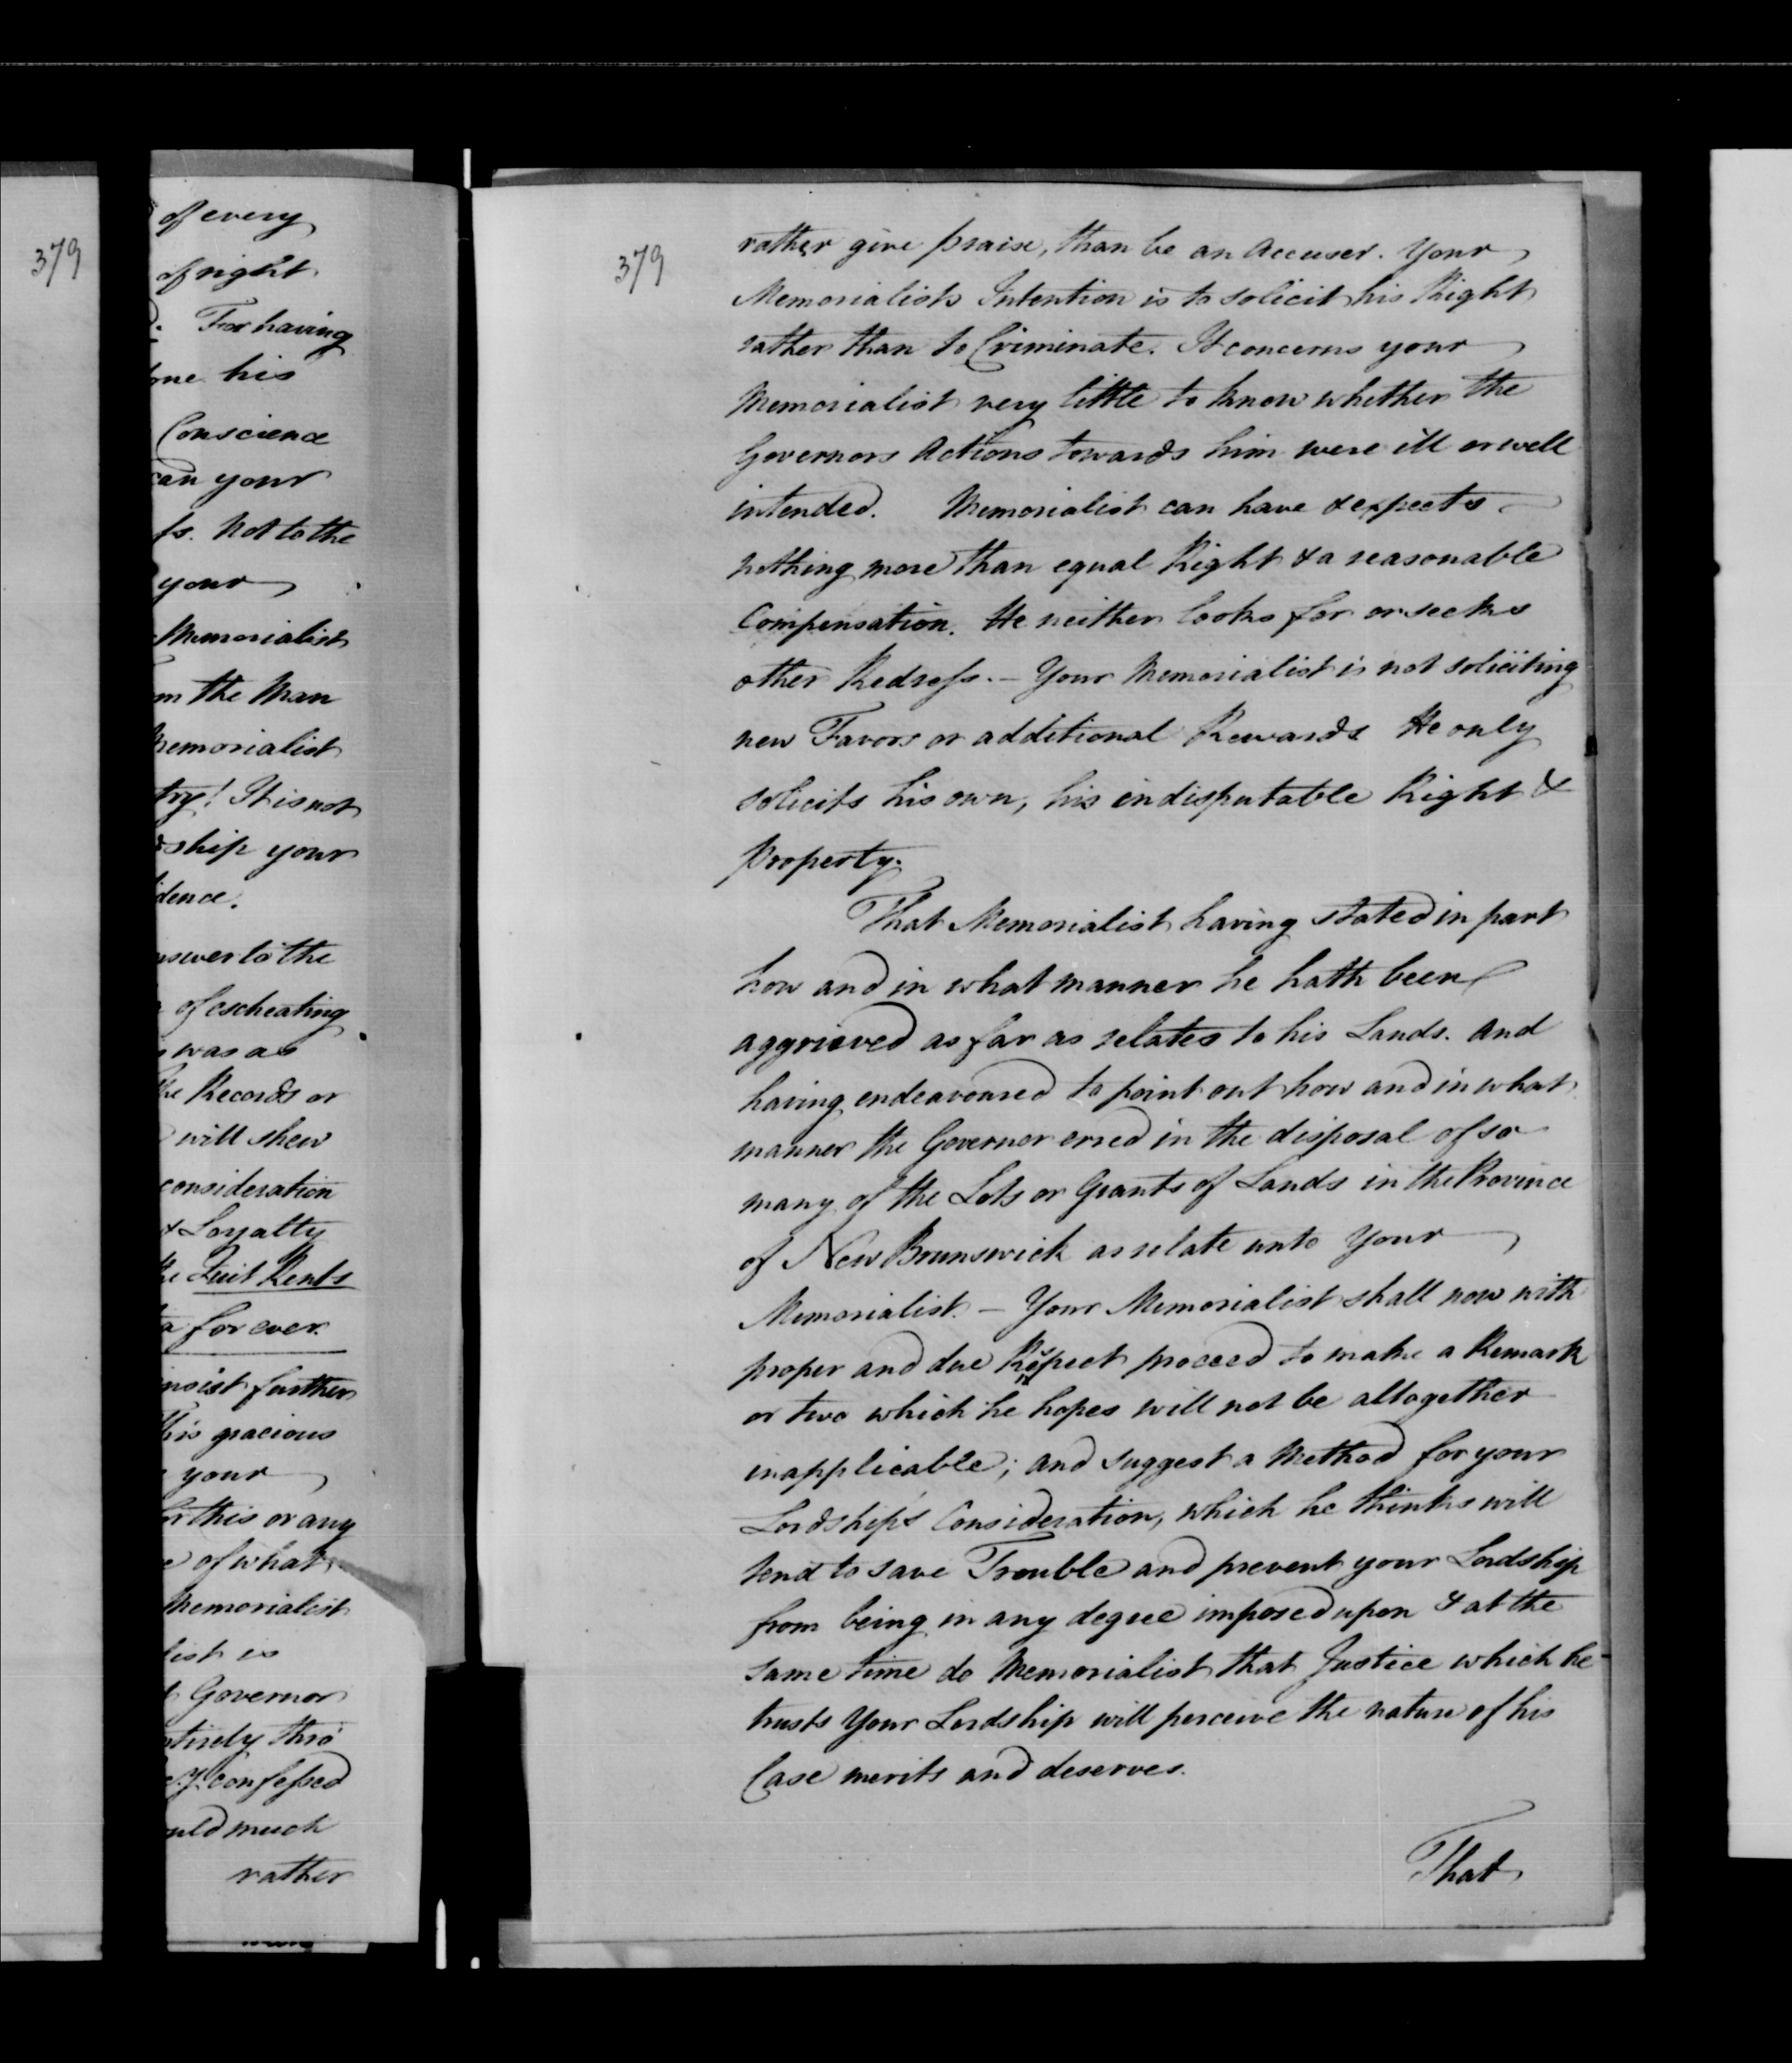 379
of every
of right
For having
his
Conscience
can your
Not to the
your
Memorialist
the Man
Memorialist
It is not
ship your
to the
of escheating
was as
Records or
will shew
consideration
& Loyalty
Quit Rents
for ever.
further
gracious
your
this or any
of what
Memorialist
is
Governor
thro'
confessed
much
rather
379
rather give praise, than be an Accuser. Your
Memorialists Intention is to solicit his Right
rather than to Criminate. It concerns your
Memorialist very little to know whether the
Governors Actions towards him were ill or well
intended. Memorialist can have & expects
nothing more than equal Right & a reasonable
Compensation. He neither looks for or seeks
other Redress. — Your Memorialist is not soliciting
new Favors or additional Rewards He only
solicits his own, his indisputable Right &
property.
That Memorialist having stated in part
how and in what manner he hath been
aggrieved as far as relates to his Lands. And
having endeavoured to point out how and in what
manner the Governor erred in the disposal of so
many of the Lots or Grants of Lands in the Province
of New Brunswick as relate unto Your
Memorialist. — Your Memorialist shall now with
proper and due Respect proceed to make a Remark
or two which he hopes will not be altogether
inapplicable; and suggest a Method for your
Lordship's Consideration, which he thinks will
tend to save Trouble and prevent your Lordship
from being in any degree imposed upon & at the
same time do Memorialist that Justice which he
trusts Your Lordship will perceive the nature of his
Case merits and deserves.
That